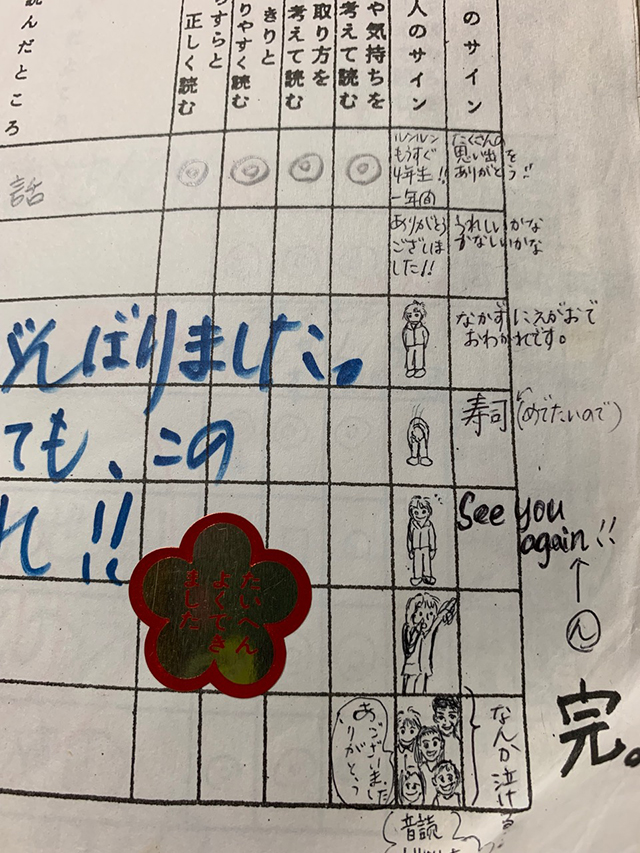 のサイン
人のサイン
や気持ちを
考えて読む
取り方を
考えて読む
きりと
りやすく読む
すらと
正しく読む
読んだところ
たくさんの
思い出を
ありがとう!!
ルンルン
もうすぐ
4年生!!
一年間
話
うれしいかな
かなしいかな
ありがとう
ございま
した!!
なかずにえがおで
おわかれです。
がんばりました。
寿司(めでたいので)
ても、この
See you
again!!
れ!!
ん
たいへん
よくでき
ました
なんか泣ける
ありがとう
ございました
完。
音読